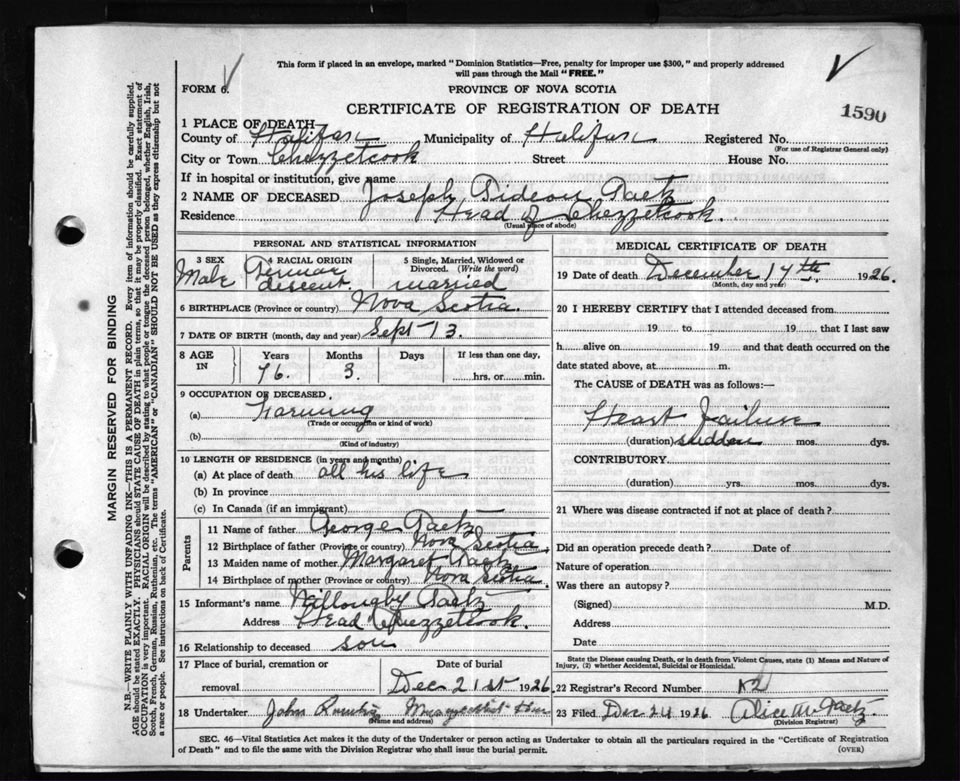 This form if placed in an envelope, marked "Dominion Statistics—Free, penalty for improper use $300," and properly addressed
will pass through the Mail "FREE."
FORM 6.
PROVINCE OF NOVA SCOTIA
CERTIFICATE OF REGISTRATION OF DEATH
1590
1 PLACE OF DEATH—
County of Halifax Municipality of Halifax Registered No.
(For use of Registrar General only)
City or Town Chezzetcook Street House No.
If in hospital or institution, give name
2 NAME OF DECEASED Joseph Gideon Gaetz
Residence Head of Chezzetcook.
(Usual place of abode)
PERSONAL AND STATISTICAL INFORMATION
3 SEX 4 RACIAL ORIGIN 5 Single, Married, Widowed or Divorced. (Write the word)
Male German descent. married
6 BIRTHPLACE (Province or country) Nova Scotia.
7 DATE OF BIRTH (month, day and year) Sept 13.
8 AGE IN Years Months Days If less than one day,
76. 3. hrs. or min.
9 OCCUPATION OF DECEASED
(a) Farming
(Trade or occupation or kind of work)
(b)
(Kind of industry)
10 LENGTH OF RESIDENCE (in years and months)
(a) At place of death all his life
(b) In province
(c) In Canada (if an immigrant)
Parents
11 Name of father George Gaetz
12 Birthplace of father (Province or country) Nova Scotia,
13 Maiden name of mother Margaret Gaetz
14 Birthplace of mother (Province or country) Nova Scotia.
15 Informant's name Willougby Gaetz
Address Head Chezzetcook.
16 Relationship to deceased son
17 Place of burial, cremation or removal Date of burial
Dec 21st 1926
18 Undertaker John
(Name and address)
MEDICAL CERTIFICATE OF DEATH
19 Date of death December 17th 1926.
(Month, day and year)
20 I HEREBY CERTIFY that I attended deceased from
19 to 19 , that I last saw
h alive on 19 and that death occurred on the
date stated above, at m.
The CAUSE of DEATH was as follows:
Heart Failure
(duration) sudden mos. dys.
CONTRIBUTORY
(duration) yrs. mos. dys.
21 Where was disease contracted if not at place of death?
Did an operation precede death? Date of
Nature of operation
Was there an autopsy?
(Signed) M.D.
Address
Date
State the Disease causing Death, or in death from Violent Causes, state (1) Means and Nature of
Injury, (2) whether Accidental, Suicidal or Homicidal.
22 Registrar's Record Number
23 Filed Dec 24 1926 Alice M Gaetz
(Division Registrar)
SEC. 46—Vital Statistics Act makes it the duty of the Undertaker or person acting as Undertaker to obtain all the particulars required in the "Certificate of Registration
of Death" and to file the same with the Division Registrar who shall issue the burial permit.
(OVER)
MARGIN RESERVED FOR BINDING
N.B.—WRITE PLAINLY WITH UNFADING INK—THIS IS A PERMANENT RECORD. Every item of information should be carefully supplied.
AGE should be stated EXACTLY. PHYSICIANS should STATE CAUSE OF DEATH in plain terms, so that it may be properly classified. Exact statement of
OCCUPATION is very important. RACIAL ORIGIN will be described by stating to what people or tongue the deceased person belonged, whether English, Irish,
Scotch, French, German, Russian, Ruthenian, etc. The terms "AMERICAN" or "CANADIAN" SHOULD NOT BE USED as they express citizenship but not
a race or people. See instructions on back of Certificate.